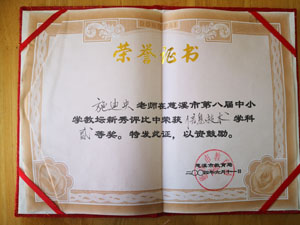 荣誉证书
施迪央 老师在慈溪市第八届中小
学教坛新秀评比中荣获 信息技术 学科
贰 等奖。特发此证,以资鼓励。
慈溪市教育局
二〇〇四年六月十一日